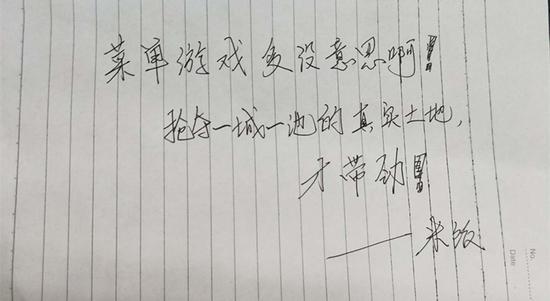 菜单游戏多没意思啊!
抢夺一城一池的真实土地,
才带劲!
——米饭
No.
Date